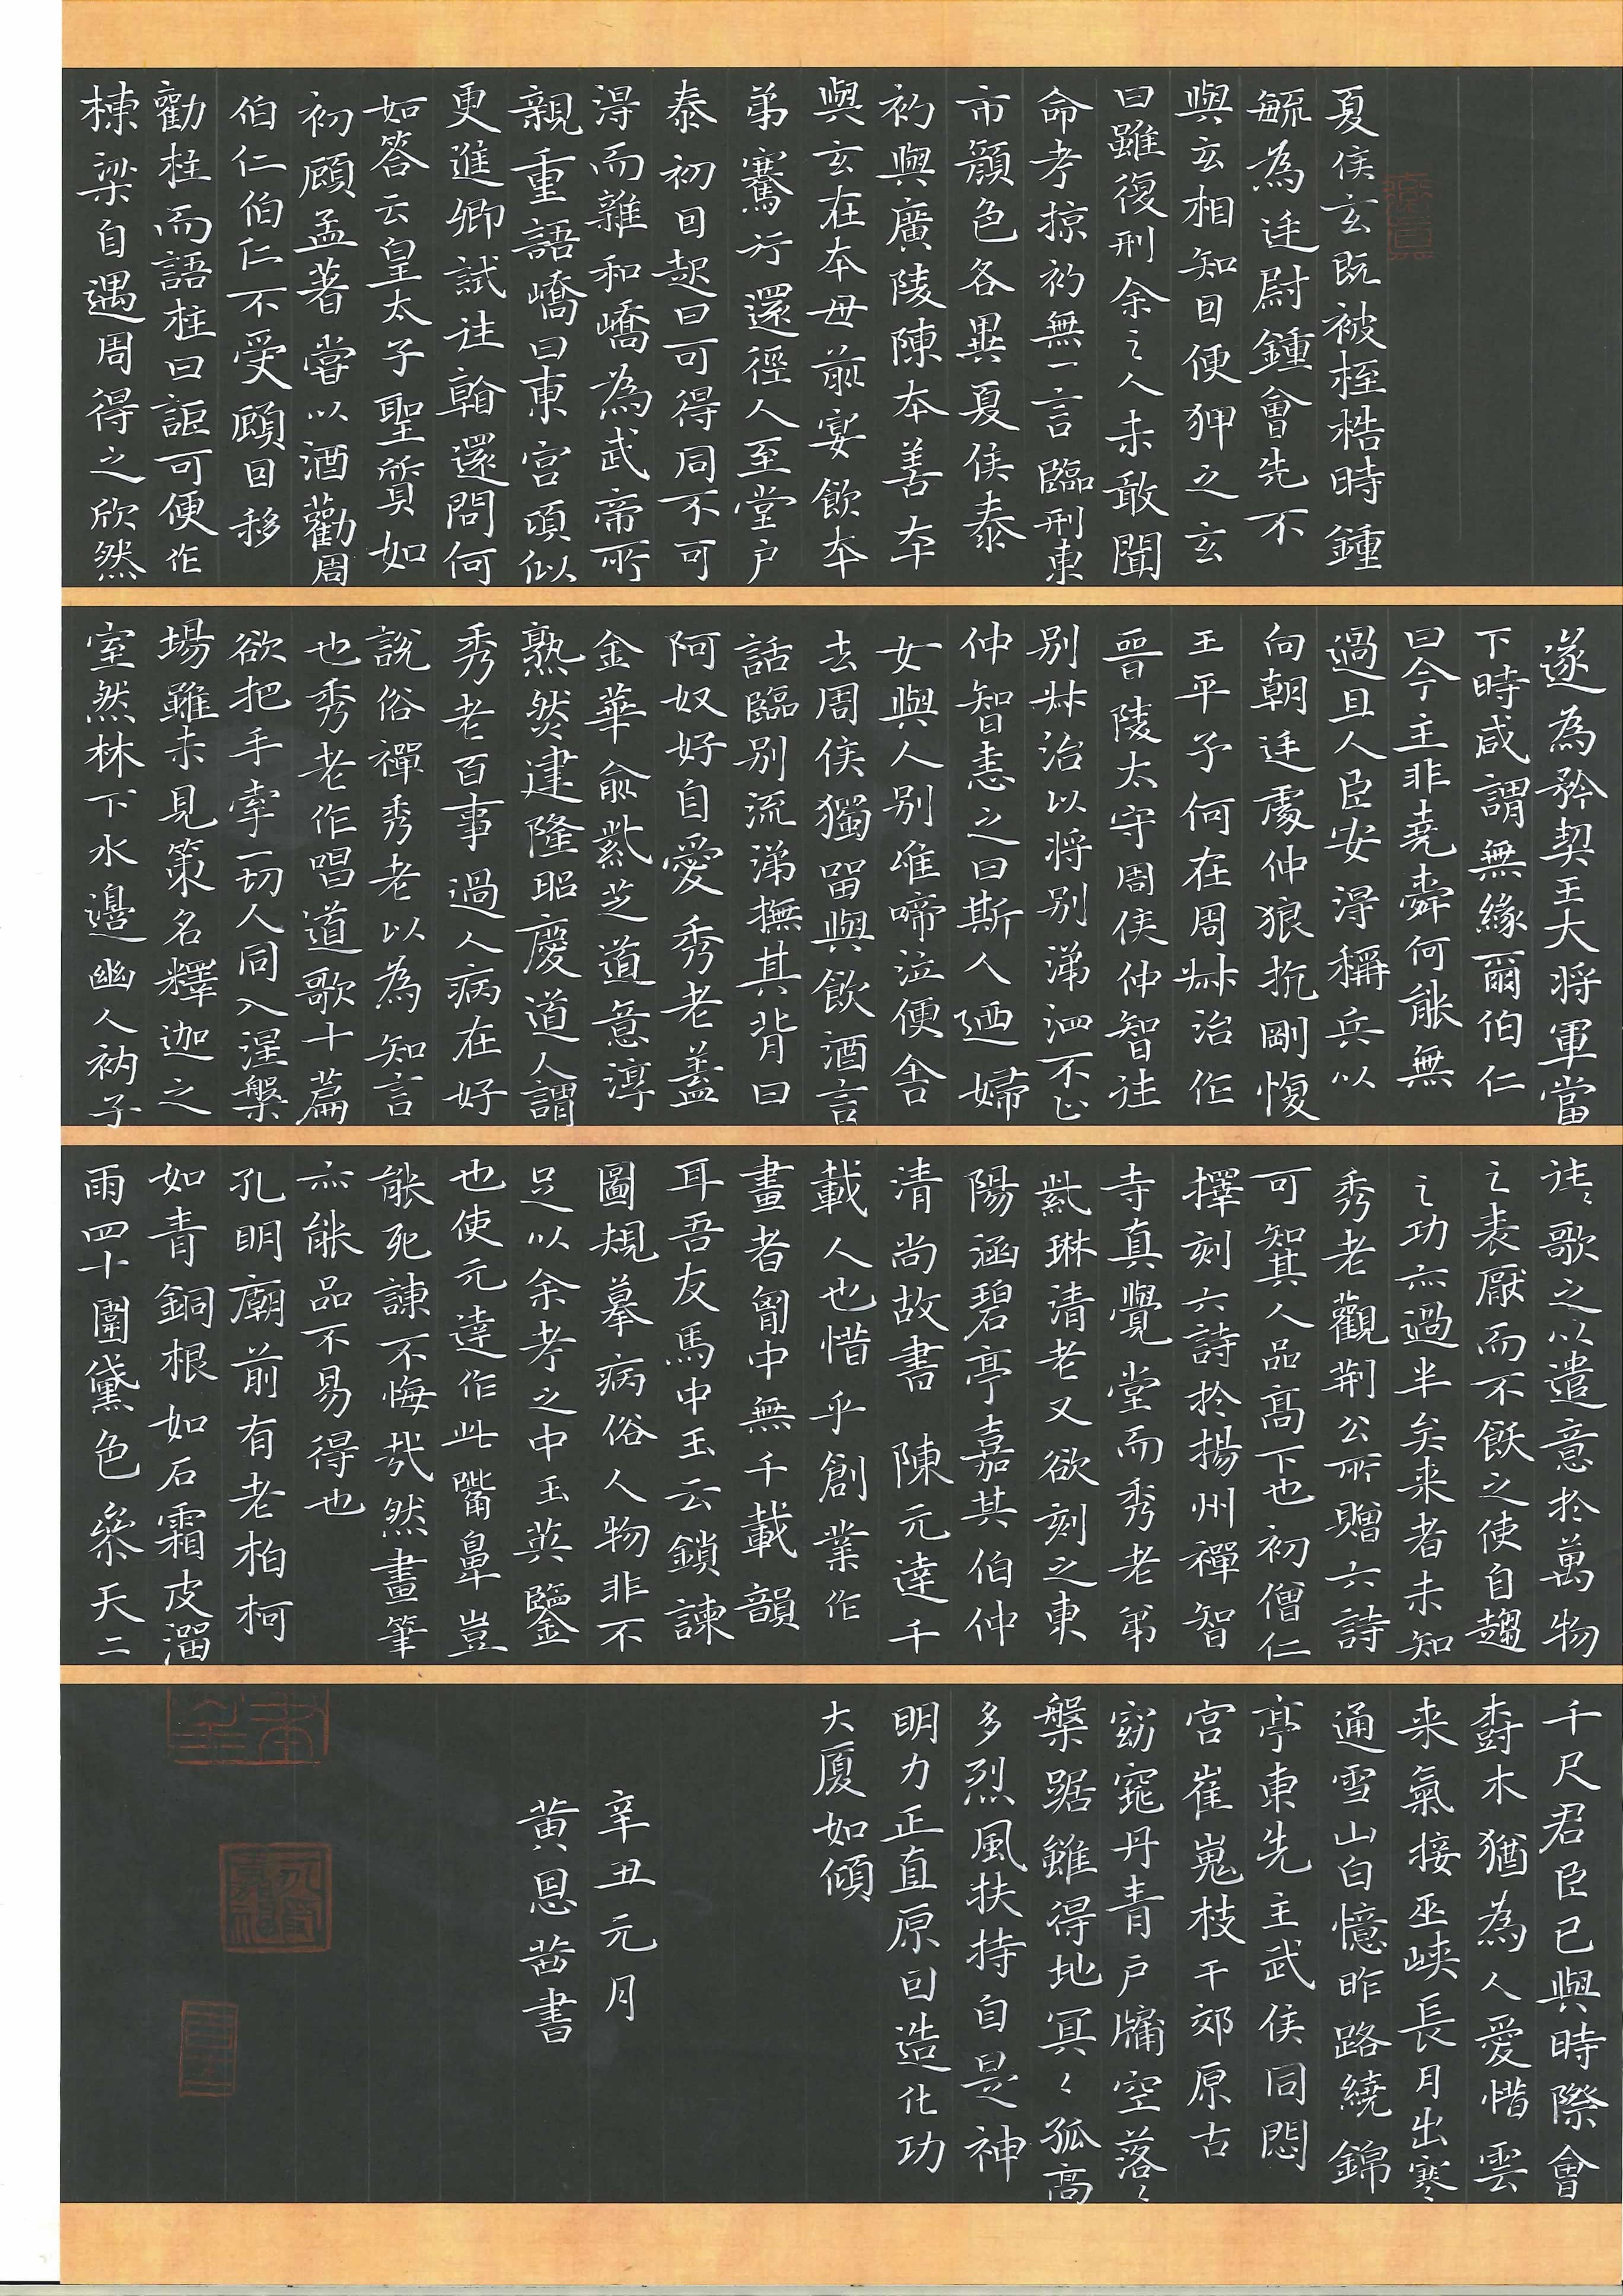 夏侯玄既被桎梏時鍾
毓為廷尉鍾會先不
與玄相知因便狎之玄
曰雖復刑余之人未敢聞
命考掠初無一言臨刑東
市顏色各異夏侯泰
初與廣陵陳本善本
與玄在本母前宴飲本
弟騫行還徑人至堂戶
泰初因起曰可得同不可
得而雜和嶠為武帝所
親重語嶠曰東宮頃似
更進卿試往翰還問何
如答云皇太子聖質如
初顧孟著嘗以酒勸周
伯仁伯仁不受顧因移
勸柱而語柱曰詎可便作
棟梁自遇周得之欣然
遂為矜契王大將軍當
下時咸謂無緣爾伯仁
曰今主非堯舜何能無
過且人臣安得稱兵以
向朝廷處仲狼抗剛愎
王平子何在周叔治作
晉陵太守周侯仲智往
別叔治以將別涕泗不止
仲智恚之曰斯人廼婦
女與人別唯啼泣便舍
去周侯獨留與飲酒言
話臨別流涕撫其背曰
阿奴好自愛秀老蓋
金華俞紫芝道意淳
熟然建隆昭慶道人謂
秀老百事過人病在好
說俗禪秀老以為知言
也秀老作唱道歌十篇
欲把手牽一切人同入涅槃
場雖未見策名釋迦之
室然林下水邊幽人衲子
往〻歌之以遣意於萬物
之表厭而不飫之使自趨
之功亦過半矣來者未知
秀老觀荊公所贈六詩
可知其人品高下也初僧仁
擇刻六詩於揚州禪智
寺真覺堂而秀老弟
紫琳清老又欲刻之東
陽涵碧亭嘉其伯仲
清尚故書 陳元達千
載人也惜乎創業作
畫者胷中無千載韻
耳吾友馬中玉云鎖諫
圖規摹病俗人物非不
足以余考之中玉英鑒
也使元達作此觜鼻豈
能死諫不悔哉然畫筆
亦能品不易得也
孔明廟前有老柏柯
如青銅根如石霜皮溜
雨四十圍黛色參天二
千尺君臣已與時際會
樹木猶為人愛惜雲
來氣接巫峽長月出寒
通雪山白憶昨路繞錦
亭東先主武侯同閟
宮崔嵬枝干郊原古
窈窕丹青戶牖空落〻
槃踞雖得地冥〻孤高
多烈風扶持自是神
明力正直原因造化功
大廈如傾
辛丑元月
黃恩茜書